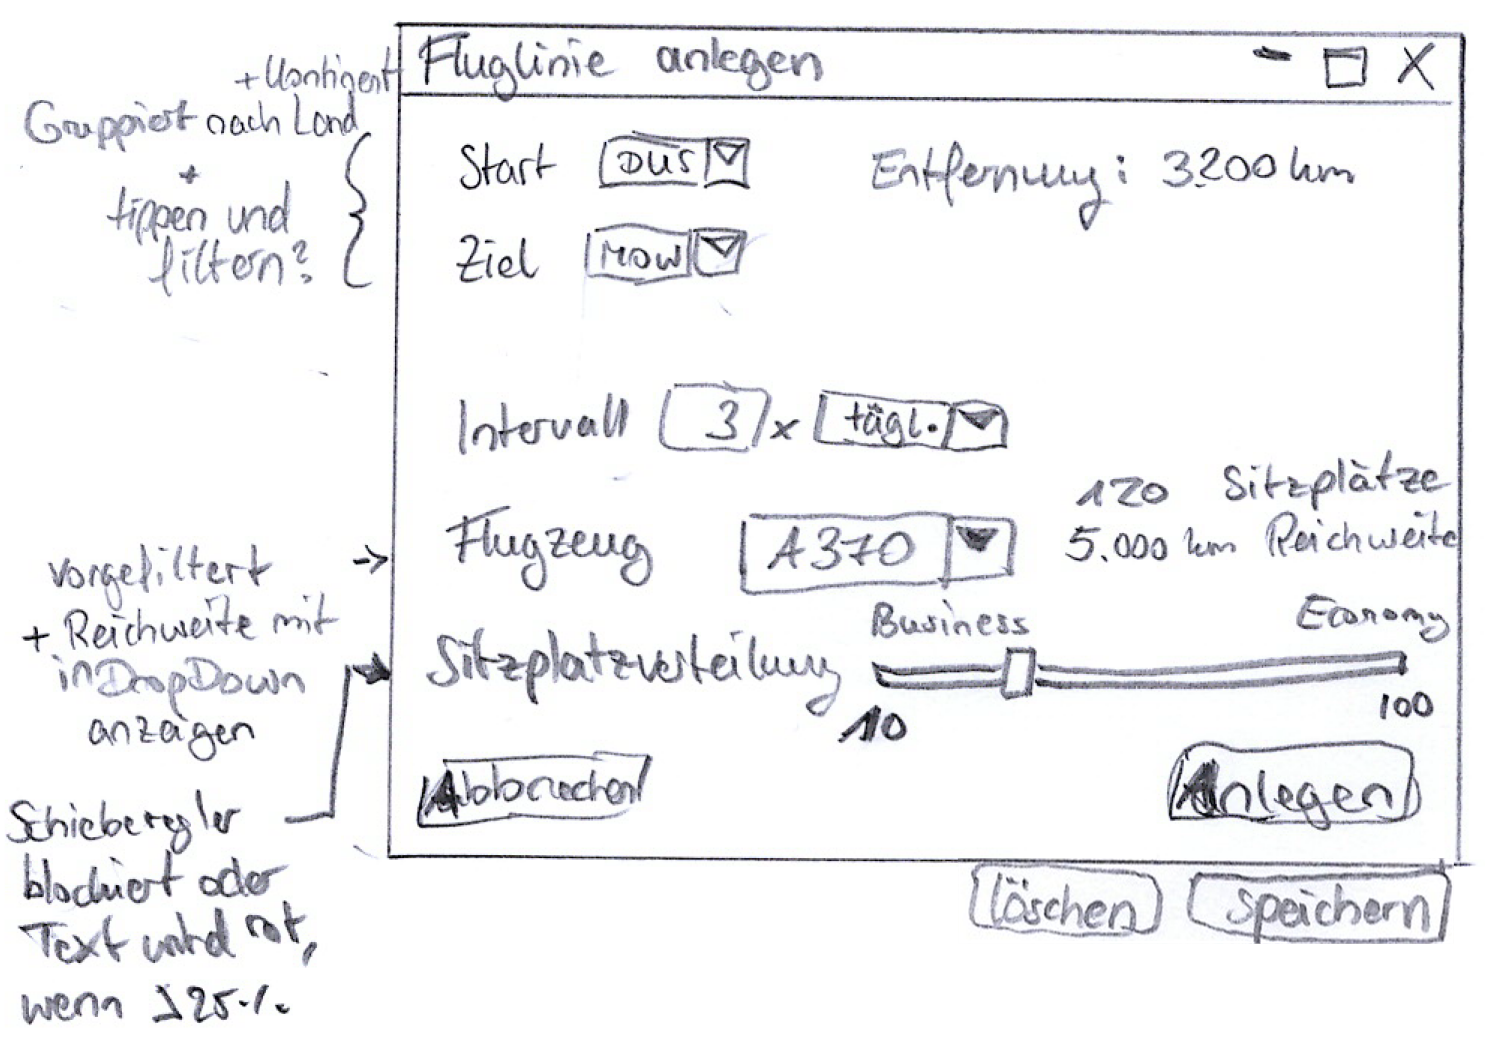 Fluglinie anlegen
+ Kontinent
Gruppiert nach Land
+
tippen und
filtern?
Start DUS
Entfernung: 3.200 km
Ziel MOW
Intervall 3 x tägl.
Flugzeug A370
120 Sitzplätze
5.000 km Reichweite
vorgefiltert
+ Reichweite mit
in DropDown
anzeigen
Sitzplatzverteilung
Business
Economy
10
100
Schieberegler
blockiert oder
Text wird rot,
wenn 25%
Abbrechen
Anlegen
löschen
speichern